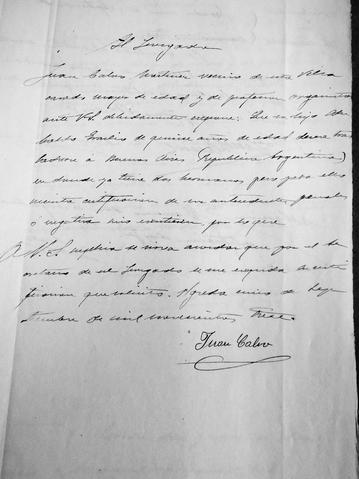 Al Juzgado
Juan Calvo Martinez vecino de esta Villa
casado mayor de edad y de profesion organista
ante V.S. debidamente expone: Que su hijo
Calvo de quince años de edad desea tras
ladarse á Buenos Aires (República Argentina)
en donde ya tiene dos hermanos pero para ello
necesita certificacion de sus antecedentes penales
ó negativa si no existieran por lo que
A V.S. suplica se sirva acordar que por el Se
cretario de ese Juzgado se me expida la certi
ficacion que solicito. Agreda cinco de Sep
tiembre de mil novecientos trece.
Juan Calvo